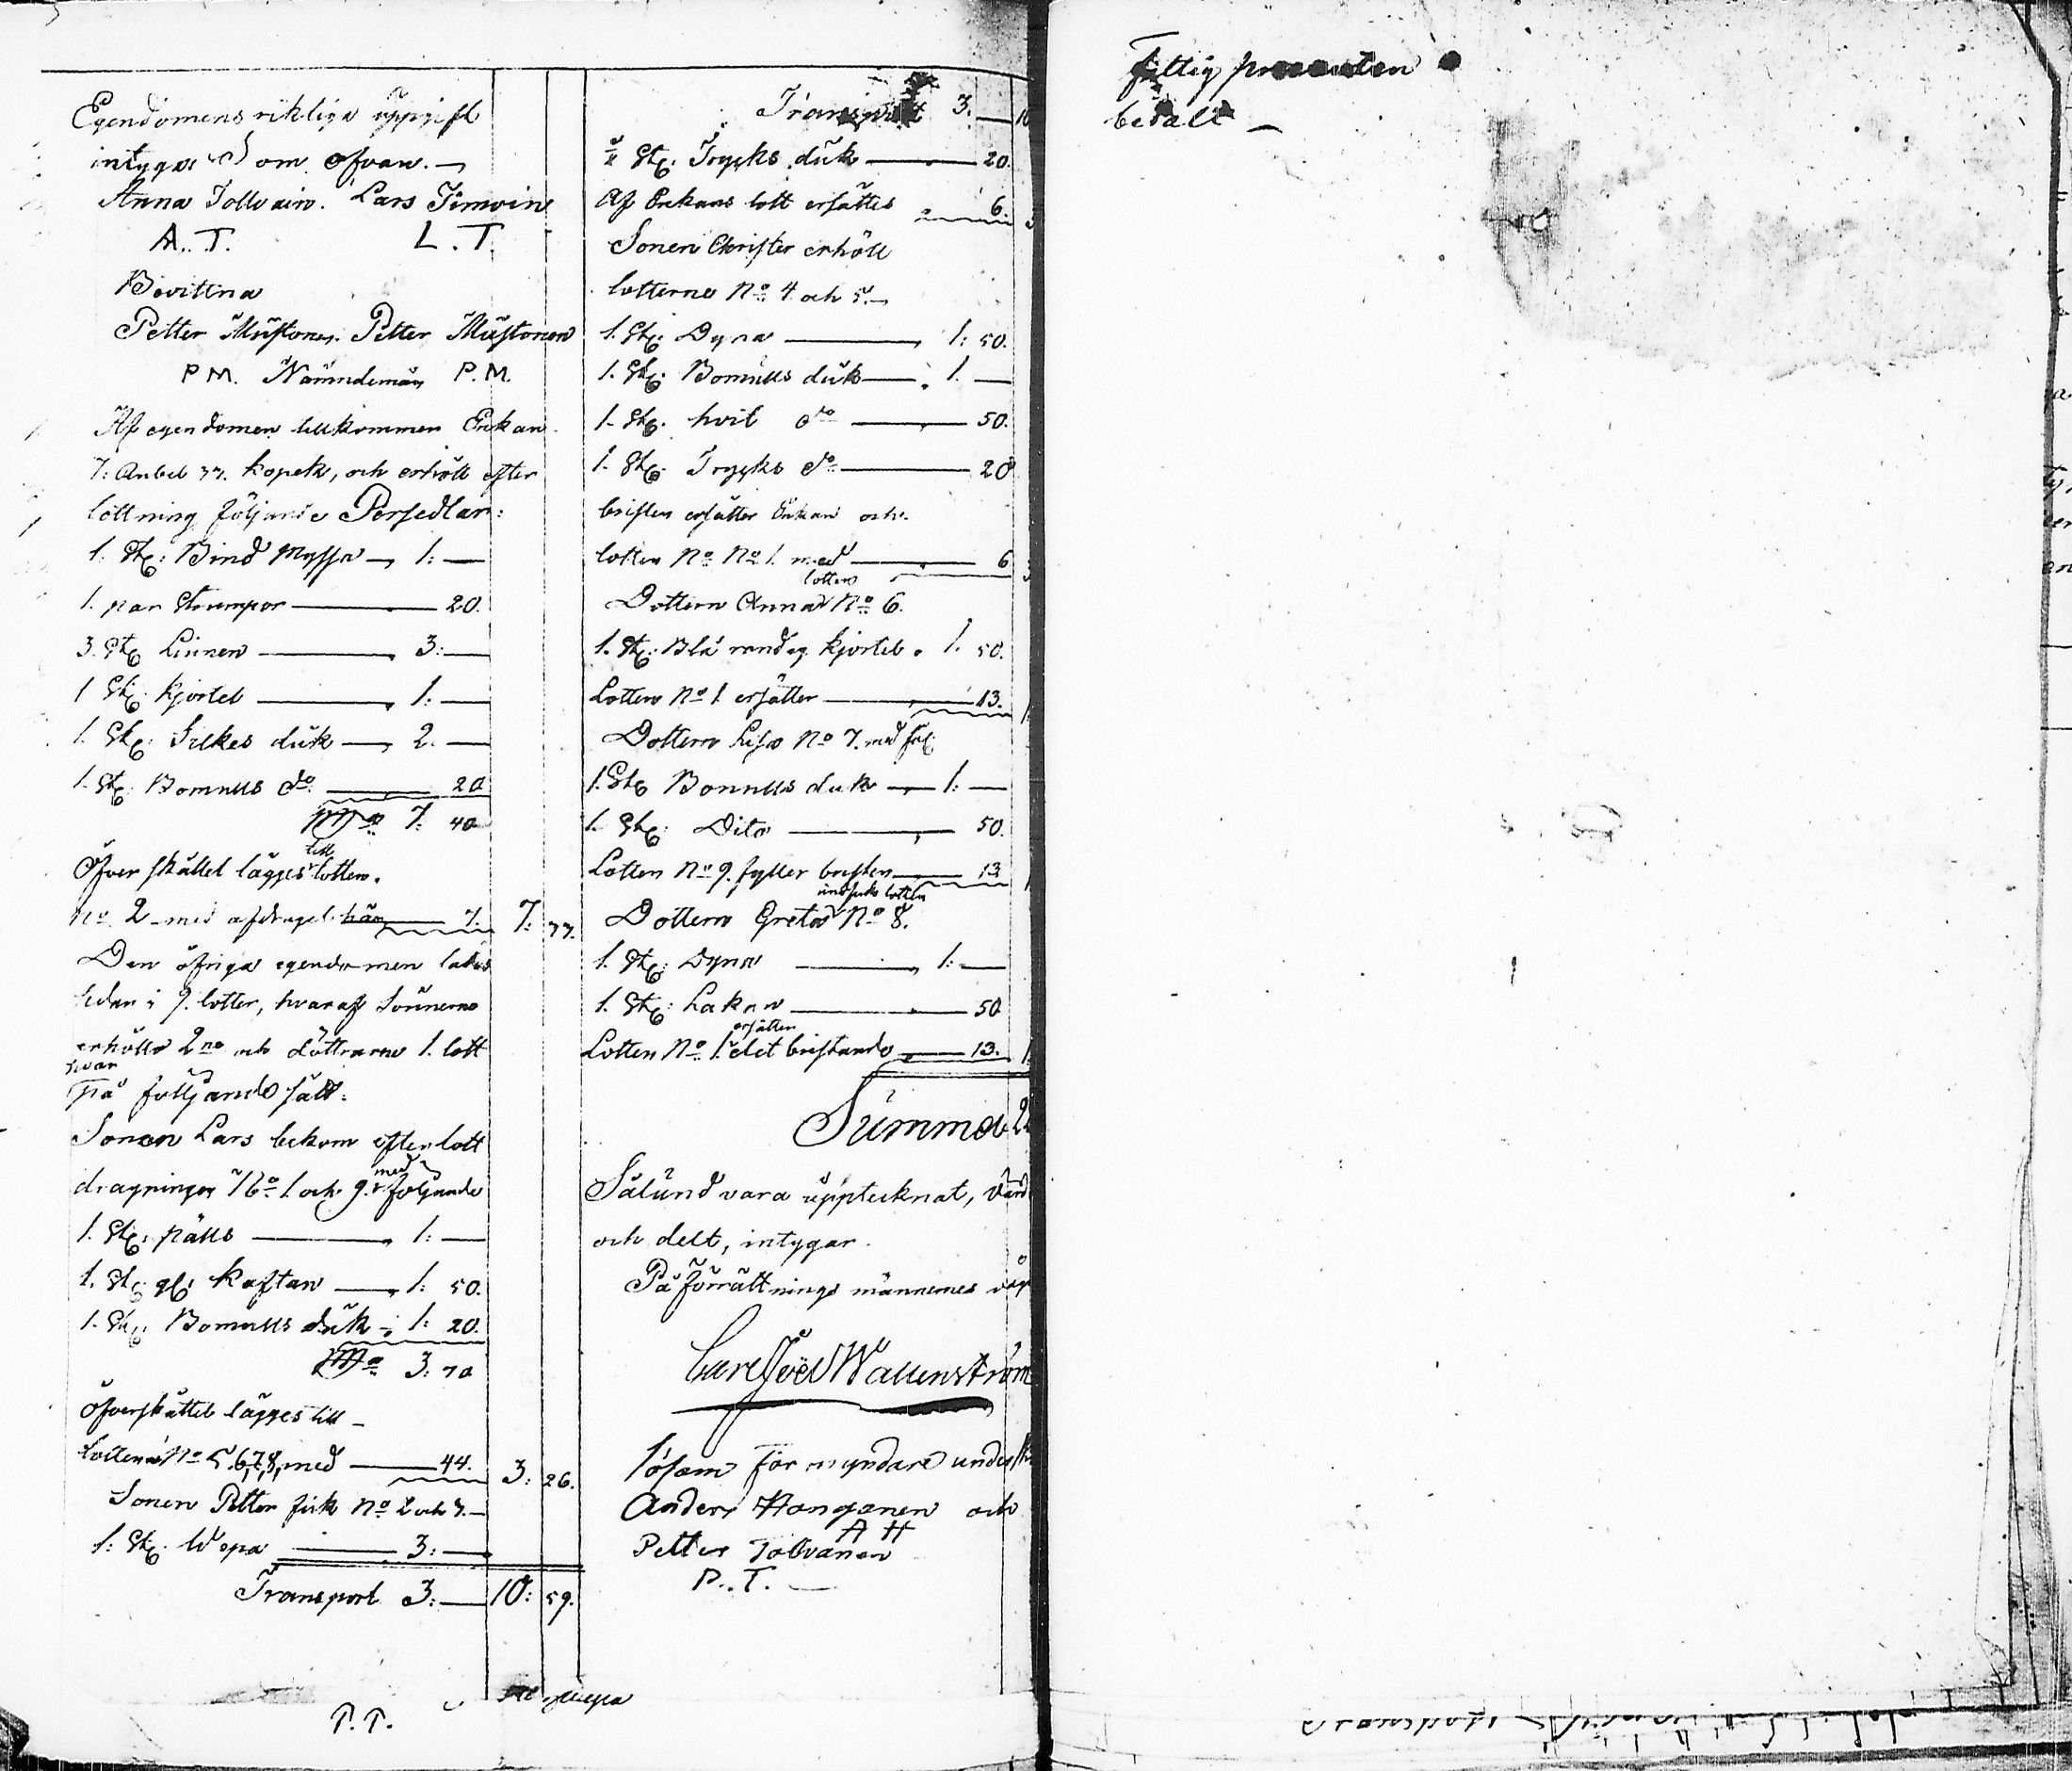 Egendomens riktiga uppgift
intygas som ofvan. —
Anna Tollvain. Lars Timoin
A. T. L. T.
Bevittna
Petter Mustonen. Petter Mustonen
P M. Nämndemän P. M.
Af egendomen tillkommer Enkan
7: Rubel 33. kopek, och erhöll efter
lottning följande Persedlar:
1. Stÿ: Bind myssa — 1: —
1. par Strumpor — 20.
3. St. Linnen — 3: —
1 St. kjortel — 1: —
1. St. Silkes duk — 2. —
1. St. Bomulls do. — 20
7: 40
Öfverskottet lägges till lotten.
No. 2 med afdraget här — 7. 7: 33.
Den öfriga egendomen lades
sedan i 9. lotter, hvaraf Sönerne
erhöllo 2ne och döttrarne 1. lott
hvar
på följande sätt:
Sonen Lars bekom efter lott
dragningen No 1. och 9. med följande
1. St. päls — 1: —
1. St. gl. kaftan — 1: 50.
1. St. Bomulls duk — 1: 20.
3: 70
Öfverskottet lägges till —
Lotterne No 5. 6, 7, 8, med — 44. 3: 26.
Sonen Petter fick No 2 och 3. —
1: St. Wepa — 3: —
Transport 3: — 10: 59.
P. P.
Transport 3. — 10
St. Trycks duk — 20.
Af Enkans lott ersättes — 6.
Sonen Christer erhöll
lotterne No 4 och 5. —
1. St. Dyna — 1: 50.
1. St. Bomulls duk — 1. —
1. St. hvit do — 50.
1. St. Trycks do. — 20
bristen ersätter Enkan och
lotten No No 1. med — 6
Dottern Anna lotten No 6.
1. St. Blå randig kjortel. 1. 50.
Lotten No 1 ersätter — 13.
Dottern Lisa No 7. med föl.
1. St. Bomulls duk — 1: —
1. St. Dito — 50.
Lotten No 9. fyller bristen — 13
Dottern Greta undfick lotten No 8.
1. St. Dyna — 1: —
1. St. Lakan — 50
Lotten No 1. ersätter det bristande — 13.
Summa 2
Sålund vara upptecknat, värd
och delt, intygar.
På förrättnings männernes väg
Carl Joel Wallenström
Såsom förmyndare undersk
Anders Hongonen och
A H
Petter Tolvanen
P. T. —
Fattig procenten
betalt —